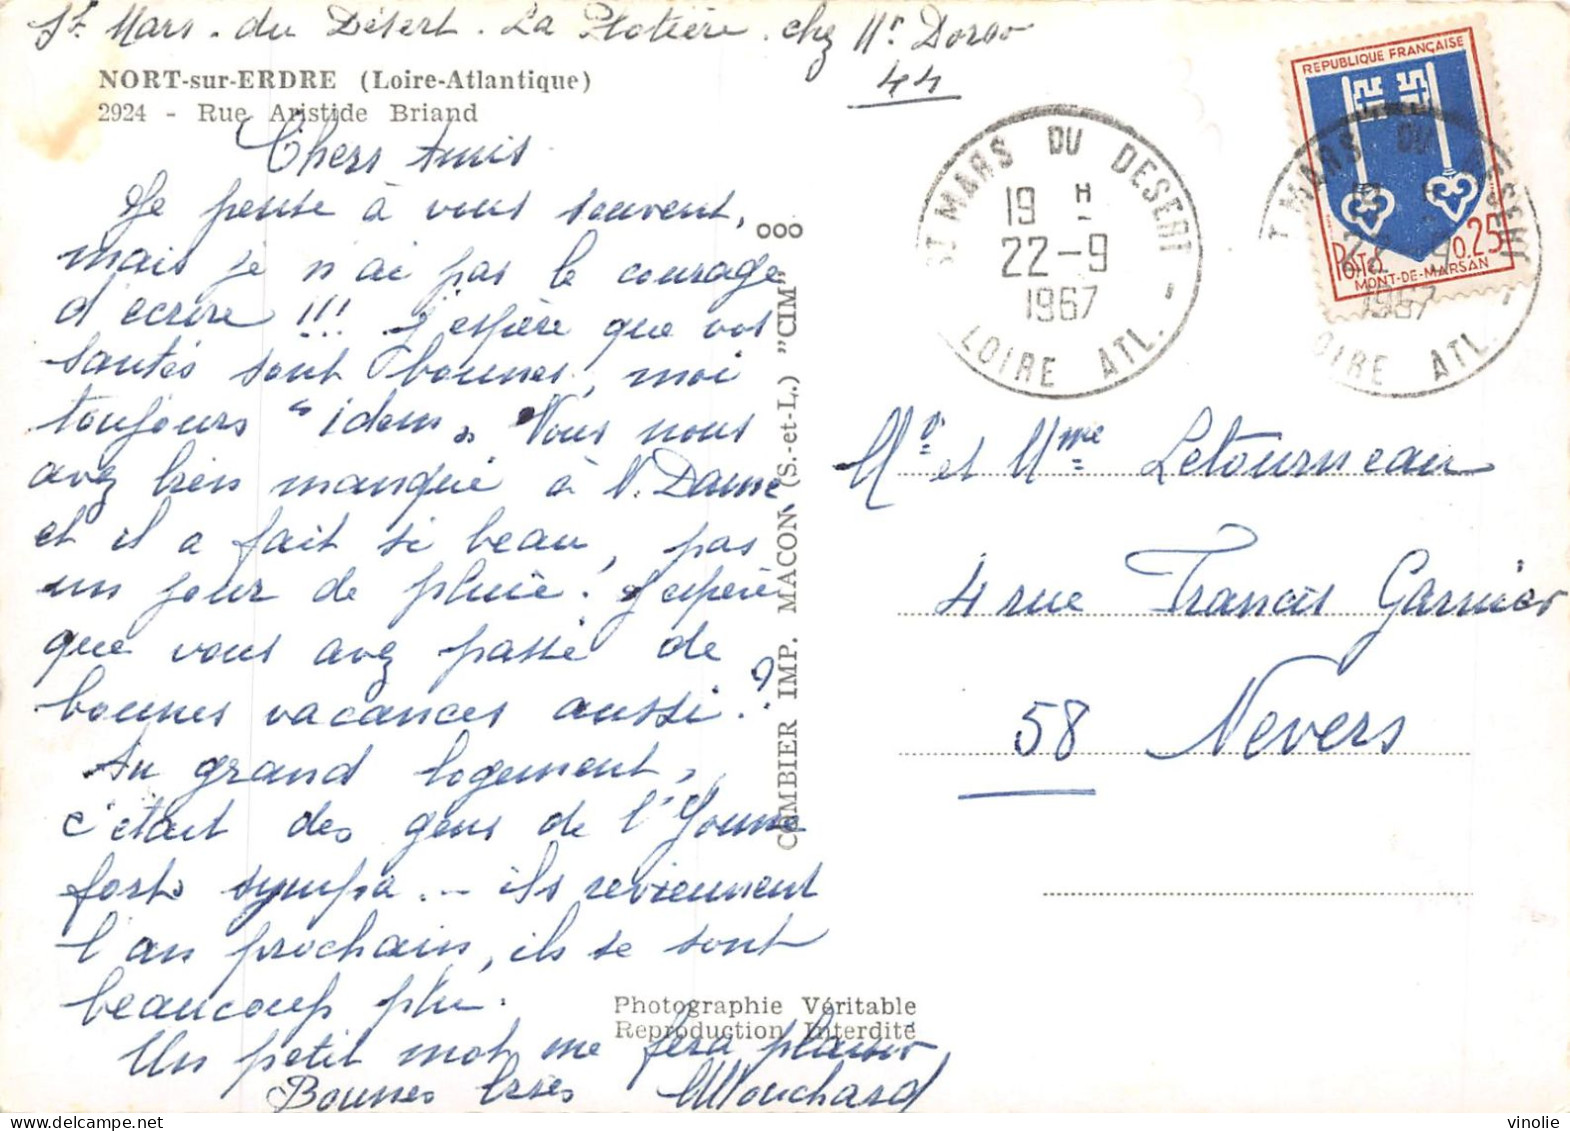 St Mars. du Désert. La Plotière. chez Mr Dorso
44
NORT-sur-ERDRE (Loire-Atlantique)
2924 - Rue Aristide Briand
Chers Amis
Je pense à vous souvent,
mais je n'ai pas le courage
d'écrire !!! J'espère que vos
santés sont bonnes, moi
toujours "idem". Vous nous
avez bien manqué à N. Dame
et il a fait si beau, pas
un jour de pluie! J'espère
que vous avez passé de
bonnes vacances aussi?
Au grand logement,
c'était des gens de l'Yonne
forts sympa. - ils reviennent
l'an prochain, ils se sont
beaucoup plu.
Un petit mot me fera plaisir
Bonnes bises Mouchard
COMBIER IMP. MACON (S.-et-L.) "CIM"
Photographie Véritable
Reproduction Interdite
ST MARS DU DESERT
19 H
22-9
1967
LOIRE ATL.
REPUBLIQUE FRANÇAISE
POSTES 0,25
MONT-DE-MARSAN
T MARS DU DESERT
22-9
1967
OIRE ATL.
Mr et Mme Letourneau
4 rue Francis Garnier
58 Nevers
vinolie